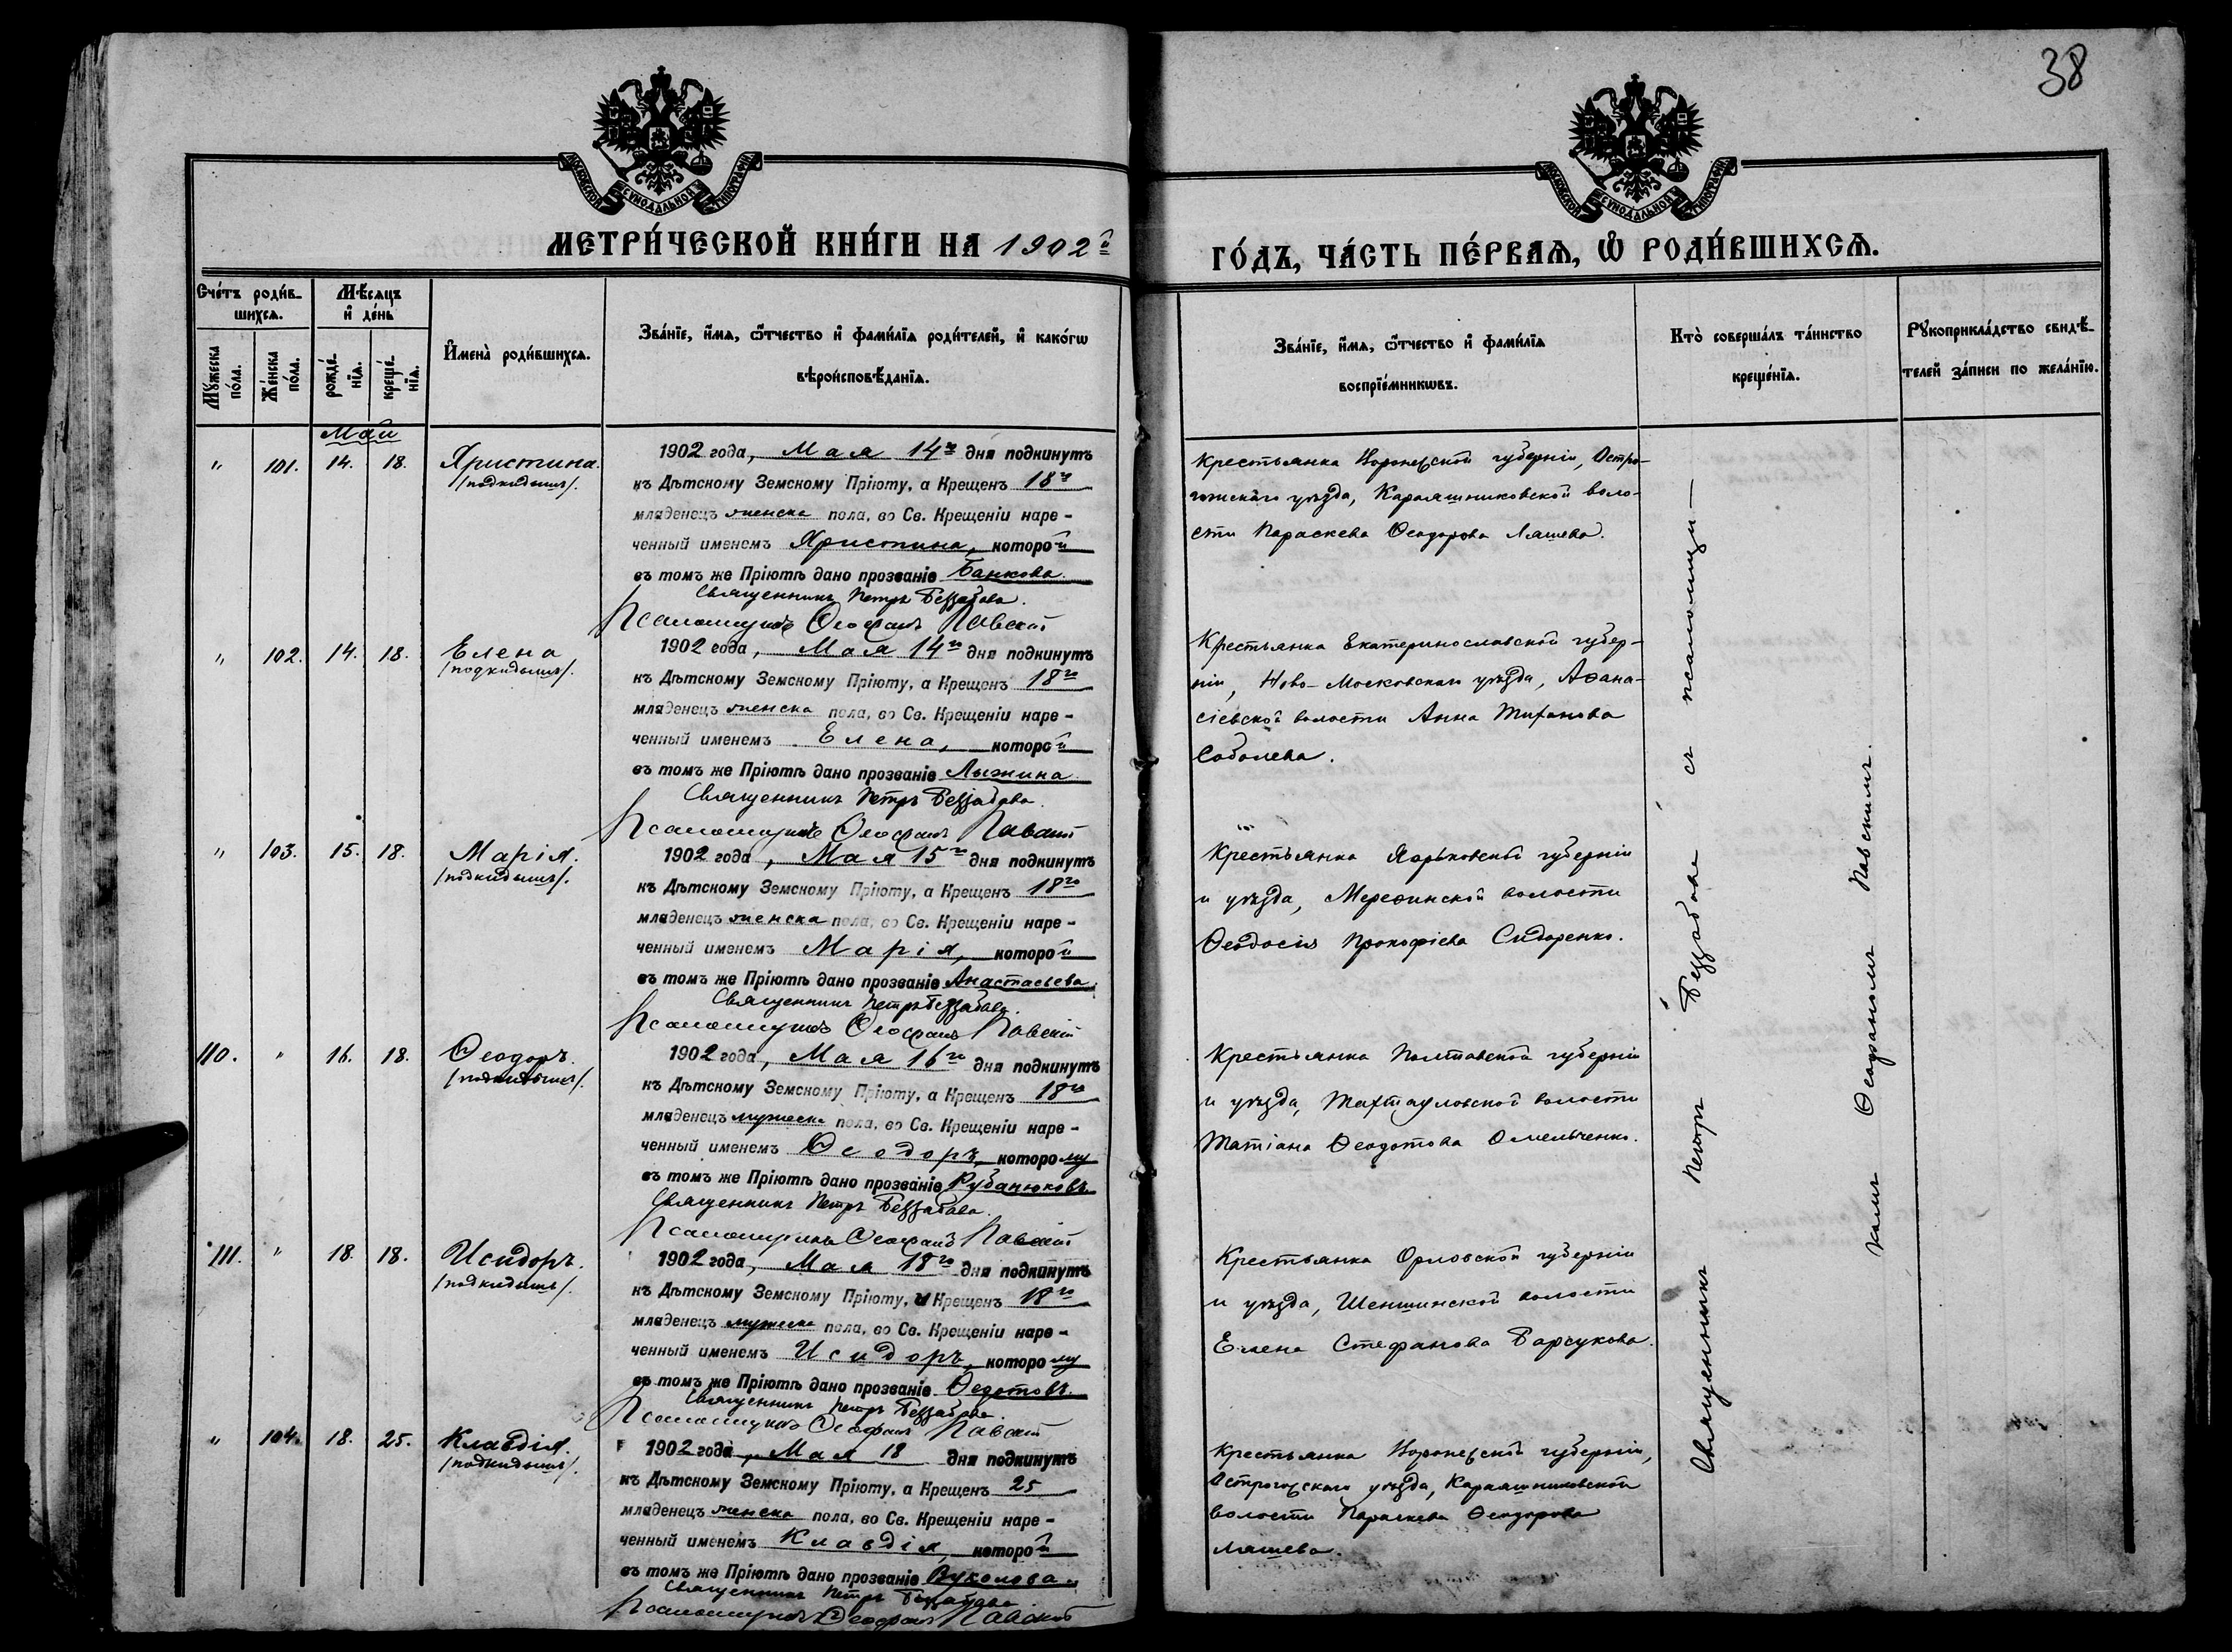 38
МОСКОВСКОЙ СѴНОДАЛЬНОЙ ТИПОГРАФІИ
МОСКОВСКОЙ СѴНОДАЛЬНОЙ ТИПОГРАФІИ
МЕТРИ́ЧЕСКОЙ КНИ́ГИ НА 1902й
ГО́ДЪ, ЧА́СТЬ ПЕ́РВАѦ, Ѡ҆ РОДИ́ВШИХСѦ.
Сче́тъ роди́в-
шихсѧ.
Мꙋ́жеска по́ла.
Же́нска по́ла.
Мѣ́сѧцъ
и҆ де́нь
рожде́-
нїѧ.
креще́-
нїѧ.
И҆мена̀ роди́вшихсѧ.
Зва́нїе, и҆́мѧ, ѻ҆́тчество и҆ фами́лїѧ роди́телей, и҆ како́гѡ
вѣроисповѣ́данїѧ.
Зва́нїе, и҆́мѧ, ѻ҆́тчество и҆ фами́лїѧ
воспрїе́мникѡвъ.
Кто̀ соверша́лъ та́инство
креще́нїѧ.
Рꙋкоприкла́дство свидѣ́-
телей за́писи по жела́нїю.
Май
" 101. 14. 18. Христина.
/подкидышъ/.
1902 года, Мая 14го дня подкинутъ
къ Дѣтскому Земскому Пріюту, а Крещенъ 18го
младенецъ женска пола, во Св. Крещеніи наре-
ченный именемъ Христина, которой
въ томъ же Пріютѣ дано прозваніе Банкова.
Священникъ Петръ Беззабава.
Псаломщикъ Ѳеофанъ Павскій
Крестьянка Воронежской губерніи, Остро-
гожскаго уѣзда, Караяшниковской воло-
сти Параскева Ѳеодорова Ляшева.
" 102. 14. 18. Елена
/подкидышъ/.
1902 года, Мая 14го дня подкинутъ
къ Дѣтскому Земскому Пріюту, а Крещенъ 18го
младенецъ женска пола, во Св. Крещеніи наре-
ченный именемъ Елена, которой
въ томъ же Пріютѣ дано прозваніе Лыжина
Священникъ Петръ Беззабава.
Псаломщикъ Ѳеофанъ Павскій
Крестьянка Екатеринославской губер-
ніи, Ново-Московскаго уѣзда, Аѳана-
сіевской волости Анна Тиханова
Соболева.
" 103. 15. 18. Марія.
/подкидышъ/.
1902 года, Мая 15го дня подкинутъ
къ Дѣтскому Земскому Пріюту, а Крещенъ 18го
младенецъ женска пола, во Св. Крещеніи наре-
ченный именемъ Марія, которой
въ томъ же Пріютѣ дано прозваніе Анастасьева.
Священникъ Петръ Беззабава.
Псаломщикъ Ѳеофанъ Павскій
Крестьянка Харьковской губерніи
и уѣзда, Мереѳинской волости
Ѳеодосія Прокофіева Сидоренко.
110. " 16. 18. Ѳеодоръ.
/подкидышъ/.
1902 года, Мая 16го дня подкинутъ
къ Дѣтскому Земскому Пріюту, а Крещенъ 18го
младенецъ мужеска пола, во Св. Крещеніи наре-
ченный именемъ Ѳеодоръ, которому
въ томъ же Пріютѣ дано прозваніе Рубанюковъ.
Священникъ Петръ Беззабава.
Псаломщикъ Ѳеофанъ Павскій
Крестьянка Полтавской губерніи
и уѣзда, волости
Татіана Ѳеодотова Омельченко.
111. " 18. 18. Исидоръ.
/подкидышъ/.
1902 года, Мая 18го дня подкинутъ
къ Дѣтскому Земскому Пріюту, и Крещенъ 18го
младенецъ мужеска пола, во Св. Крещеніи наре-
ченный именемъ Исидоръ, которому
въ томъ же Пріютѣ дано прозваніе Ѳедотовъ.
Священникъ Петръ Беззабава.
Псаломщикъ Ѳеофанъ Павскій
Крестьянка Орловской губерніи
и уѣзда, Шеншинской волости
Елена Стефанова Барсукова.
" 104. 18. 25. Клавдія.
/подкидышъ/.
1902 года, Мая 18 дня подкинутъ
къ Дѣтскому Земскому Пріюту, а Крещенъ 25
младенецъ женска пола, во Св. Крещеніи наре-
ченный именемъ Клавдія, которой
въ томъ же Пріютѣ дано прозваніе Вуколова.
Священникъ Петръ Беззабава
Псаломщикъ Ѳеофанъ Павскій
Крестьянка Воронежской губерніи,
Острогожскаго уѣзда, Караяшниковской
волости Параскева Ѳеодорова
Ляшева.
Священникъ Петръ Беззабава съ псаломщи-
комъ Ѳеофаномъ Павскимъ.